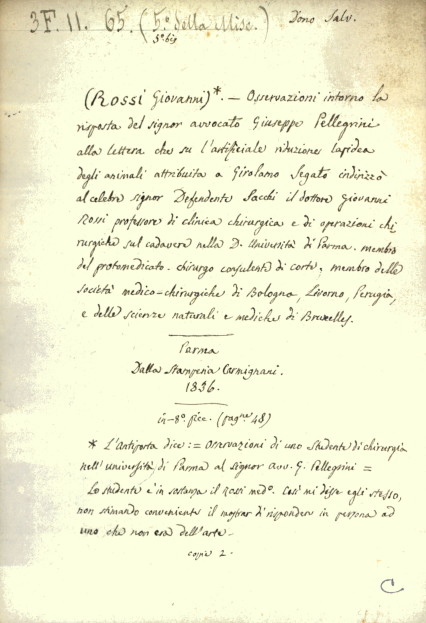 3F. 11. 65. (5.° della Misc.)
5° bis
Dono Salv.
(Rossi Giovanni)*. — Osservazioni intorno la
risposta del signor avvocato Giuseppe Pellegrini
alla lettera che su l'artificiale riduzione lapidea
degli animali attribuita a Girolamo Segato indirizzò
al celebre signor Defendente Sacchi il dottore Giovanni
Rossi professore di clinica chirurgica e di operazioni chi
rurgiche sul cadavere nella D. Università di Parma. membro
del protomedicato. chirurgo consulente di corte, membro delle
società medico-chirurgiche di Bologna, Livorno, Perugia,
e delle scienze naturali e mediche di Bruxelles.
Parma
Dalla Stamperia Carmignani.
1836.
in-8.° picc. (pag.ne 48)
* L'Antiporta dice: = Osservazioni di uno studente di chirurgia
nell'università di Parma al signor avv. G. Pellegrini =
Lo studente è in sostanza il Rossi med.° Così mi disse egli stesso,
non stimando conveniente il mostrar di rispondere in persona ad
uno che non era dell'arte.
copie 2.
C